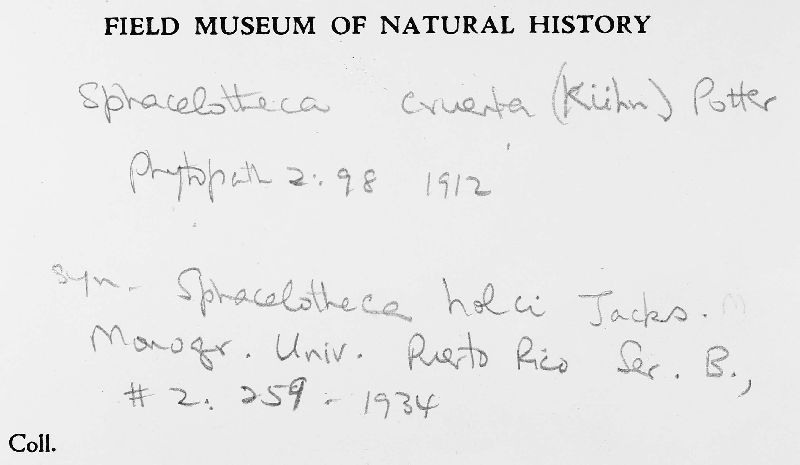 FIELD MUSEUM OF NATURAL HISTORY
Sphacelotheca cruenta (Kühn) Potter
Phytopath 2:98 1912
syn. Sphacelotheca holci Jacks.
Monogr. Univ. Puerto Rico Ser. B.,
# 2. 259 - 1934
Coll.